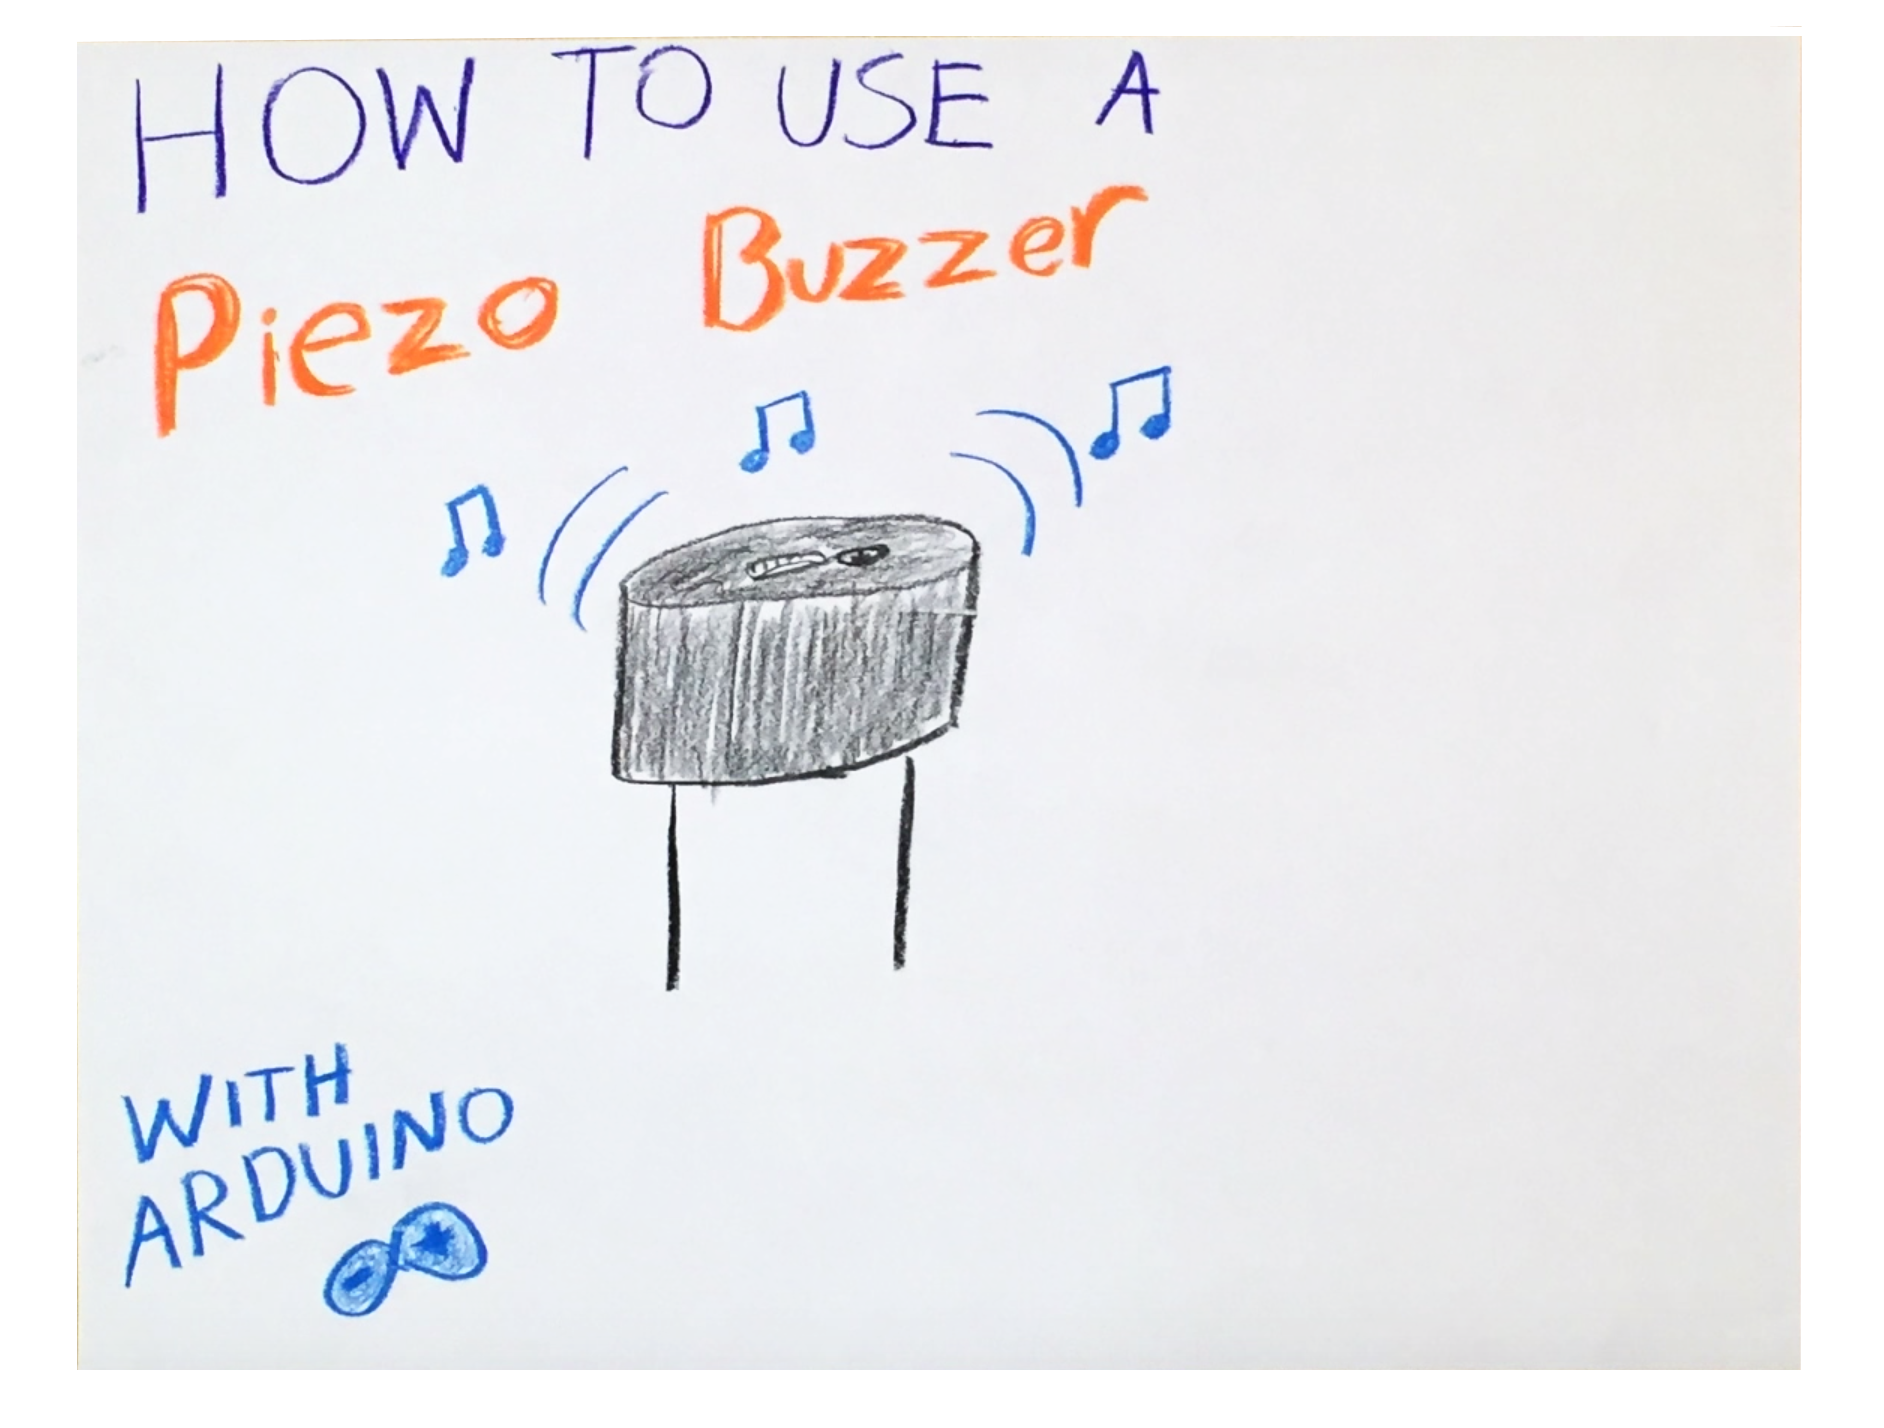 HOW TO USE A
Piezo Buzzer
WITH
ARDUINO